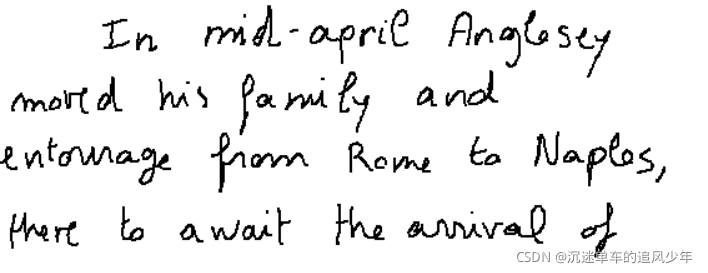 In mid-april Anglesey
moved his family and
entourage from Rome to Naples,
there to await the arrival of
CSDN @沉迷单车的追风少年